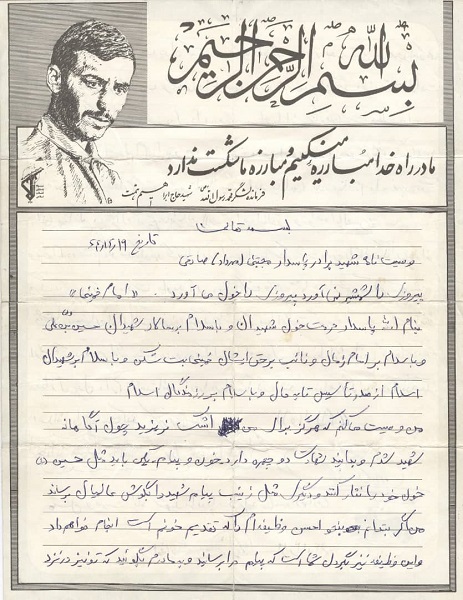 بسم الله الرحمن الرحیم
ما در راه خدا مبارزه میکنیم و مبارزه ما شکست ندارد
فرمانده لشگر محمد رسول الله شهید حاج ابراهیم همت
بسمه تعالی
تاریخ
وصیت نامه شهید برادر پاسدار مجتبی صادقی
پیروزی را شمشیر نمی آورد پیروزی را خون می آورد. «امام خمینی»
بنام الله پاسدار حرمت خون شهیدان و با سلام بر سالار شهیدان حسین بن علی
و با سلام بر امام زمان و نائب بر حق ایشان خمینی بت شکن و با سلام بر شهیدان
اسلام از صدر تاسیس تا به حال و با سلام بر رزمندگان اسلام
من وصیت میکنم که هرگز برای من اشک نریزید چون آگاهانه
شهید شدم و بدانید شهادت دو چهره دارد خون و پیام یکی باید مثل حسین
خون خود را نثار کند و دیگری مثل زینب پیام شهید را بگوش عالمیان برساند
من اگر بتوانم به نحو احسن وظیفه ام را که تقدیم خونم است انجام خواهم داد
و این وظیفه نیز بگردن شما است که پیام مرا برسانید و به مادرم بگوئید که تو نیز در نزد